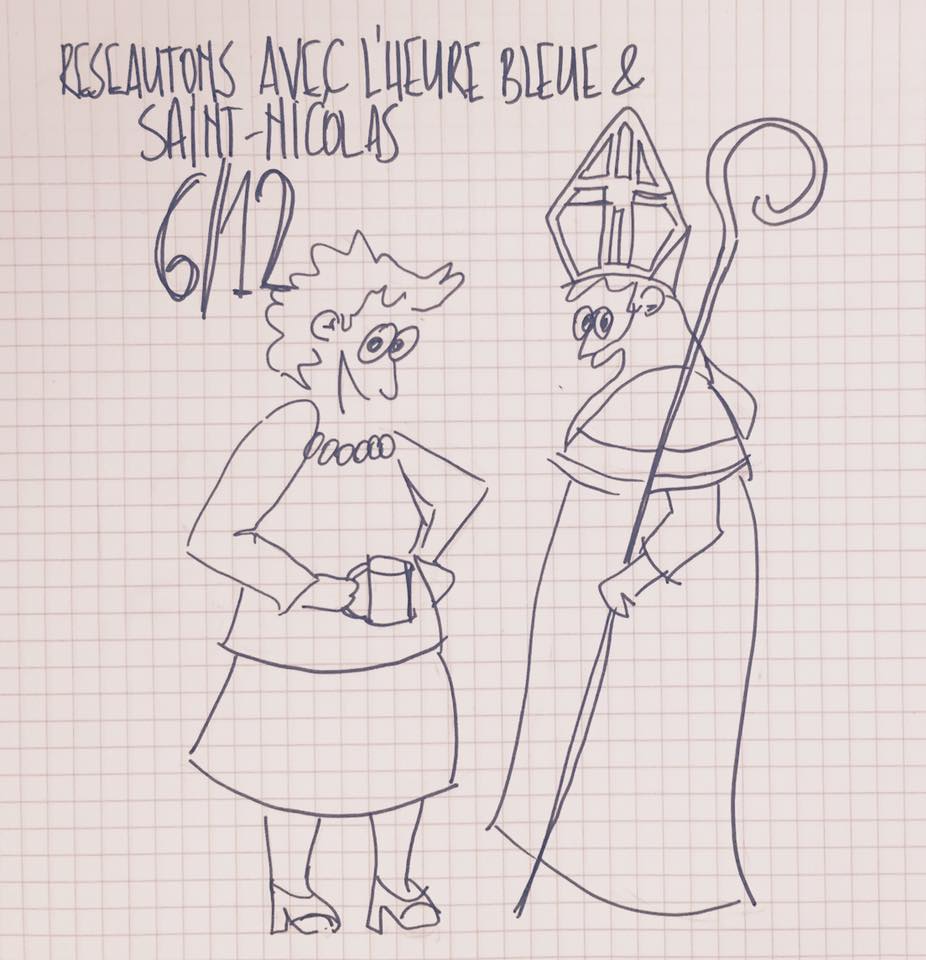 RESEAUTONS AVEC L'HEURE BLEUE &
SAINT-NICOLAS
6/12